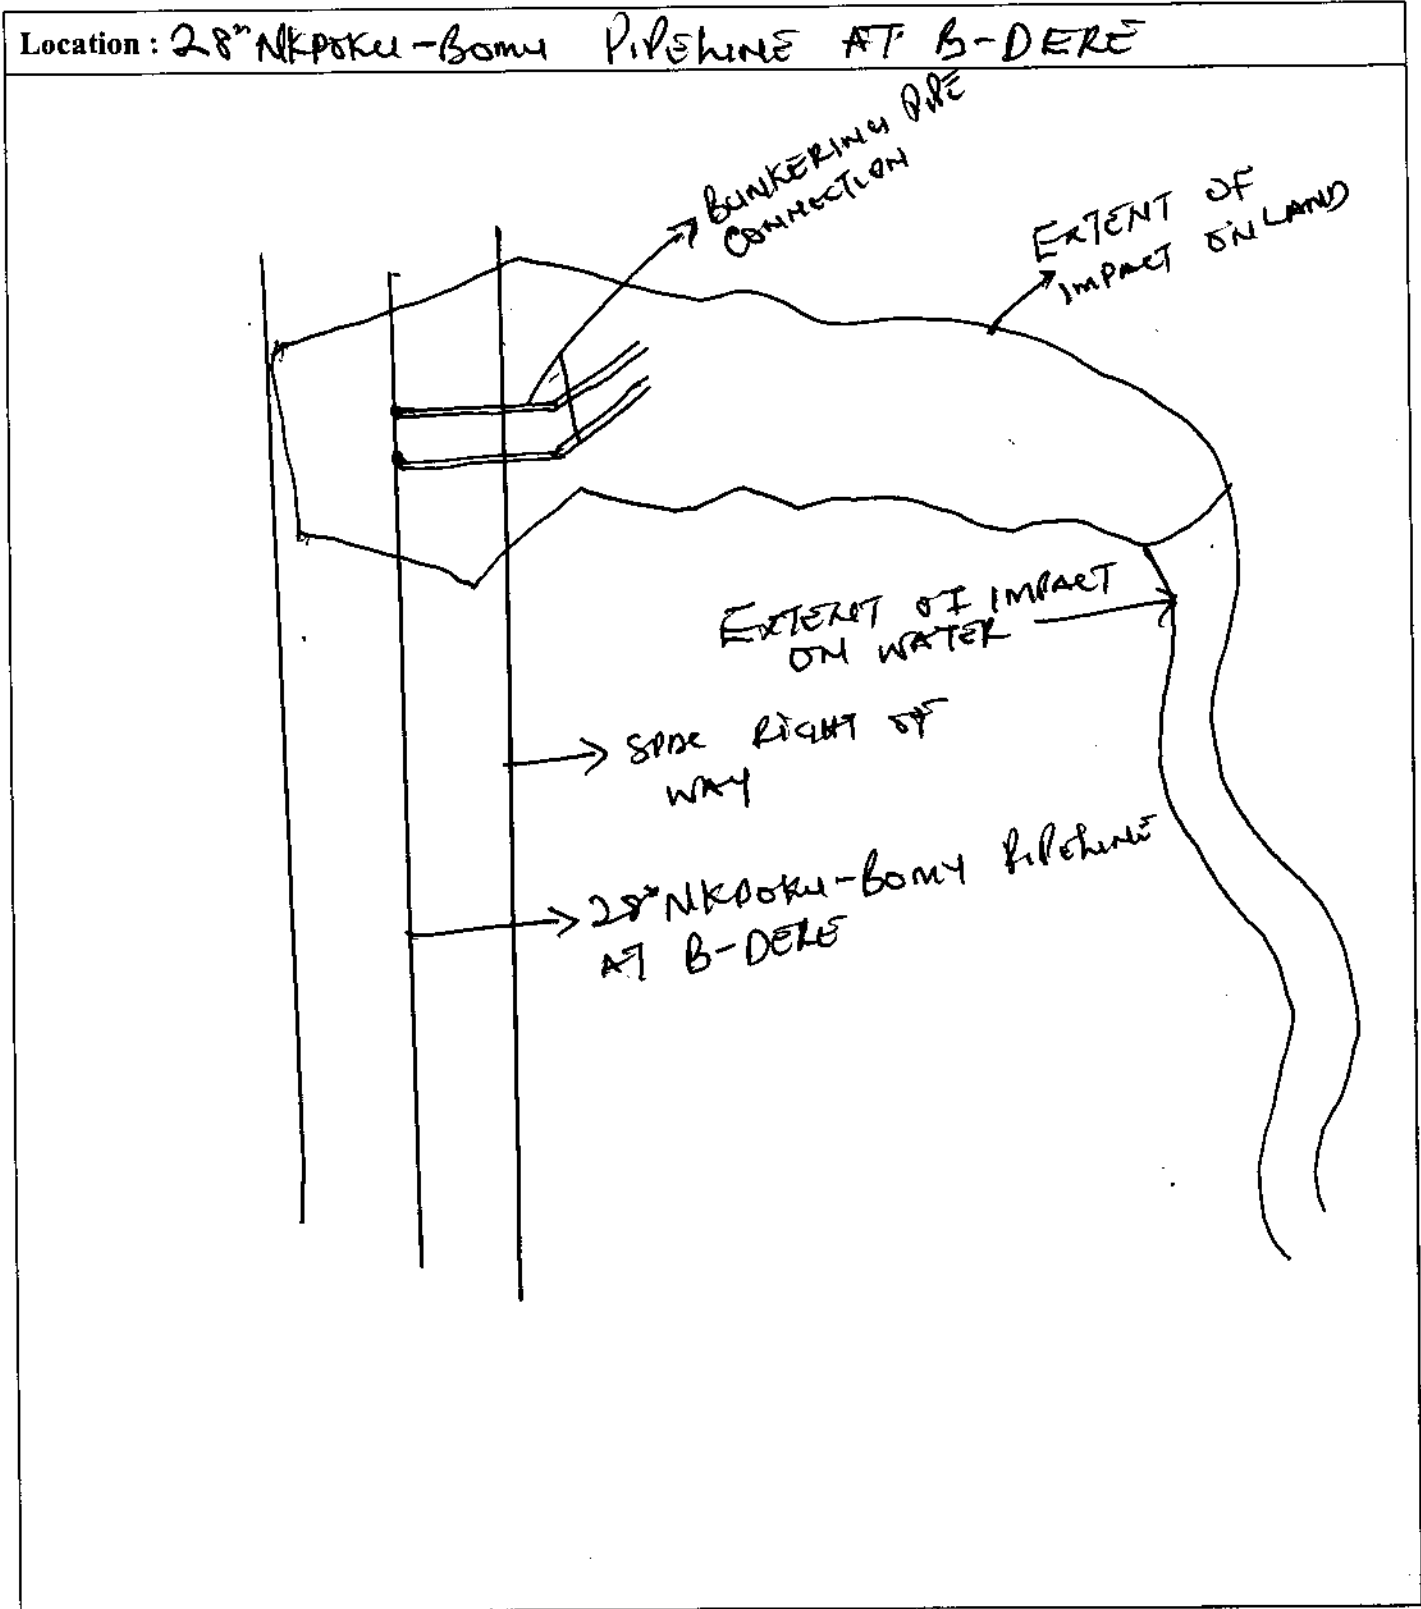 Location : 28" NKPOKU-BOMU PIPELINE AT B-DERE
BUNKERING PIPE
CONNECTION
EXTENT OF
IMPACT ON LAND
EXTENT OF IMPACT
ON WATER
SPDC RIGHT OF
WAY
28" NKPOKU-BOMU PIPELINE
AT B-DERE